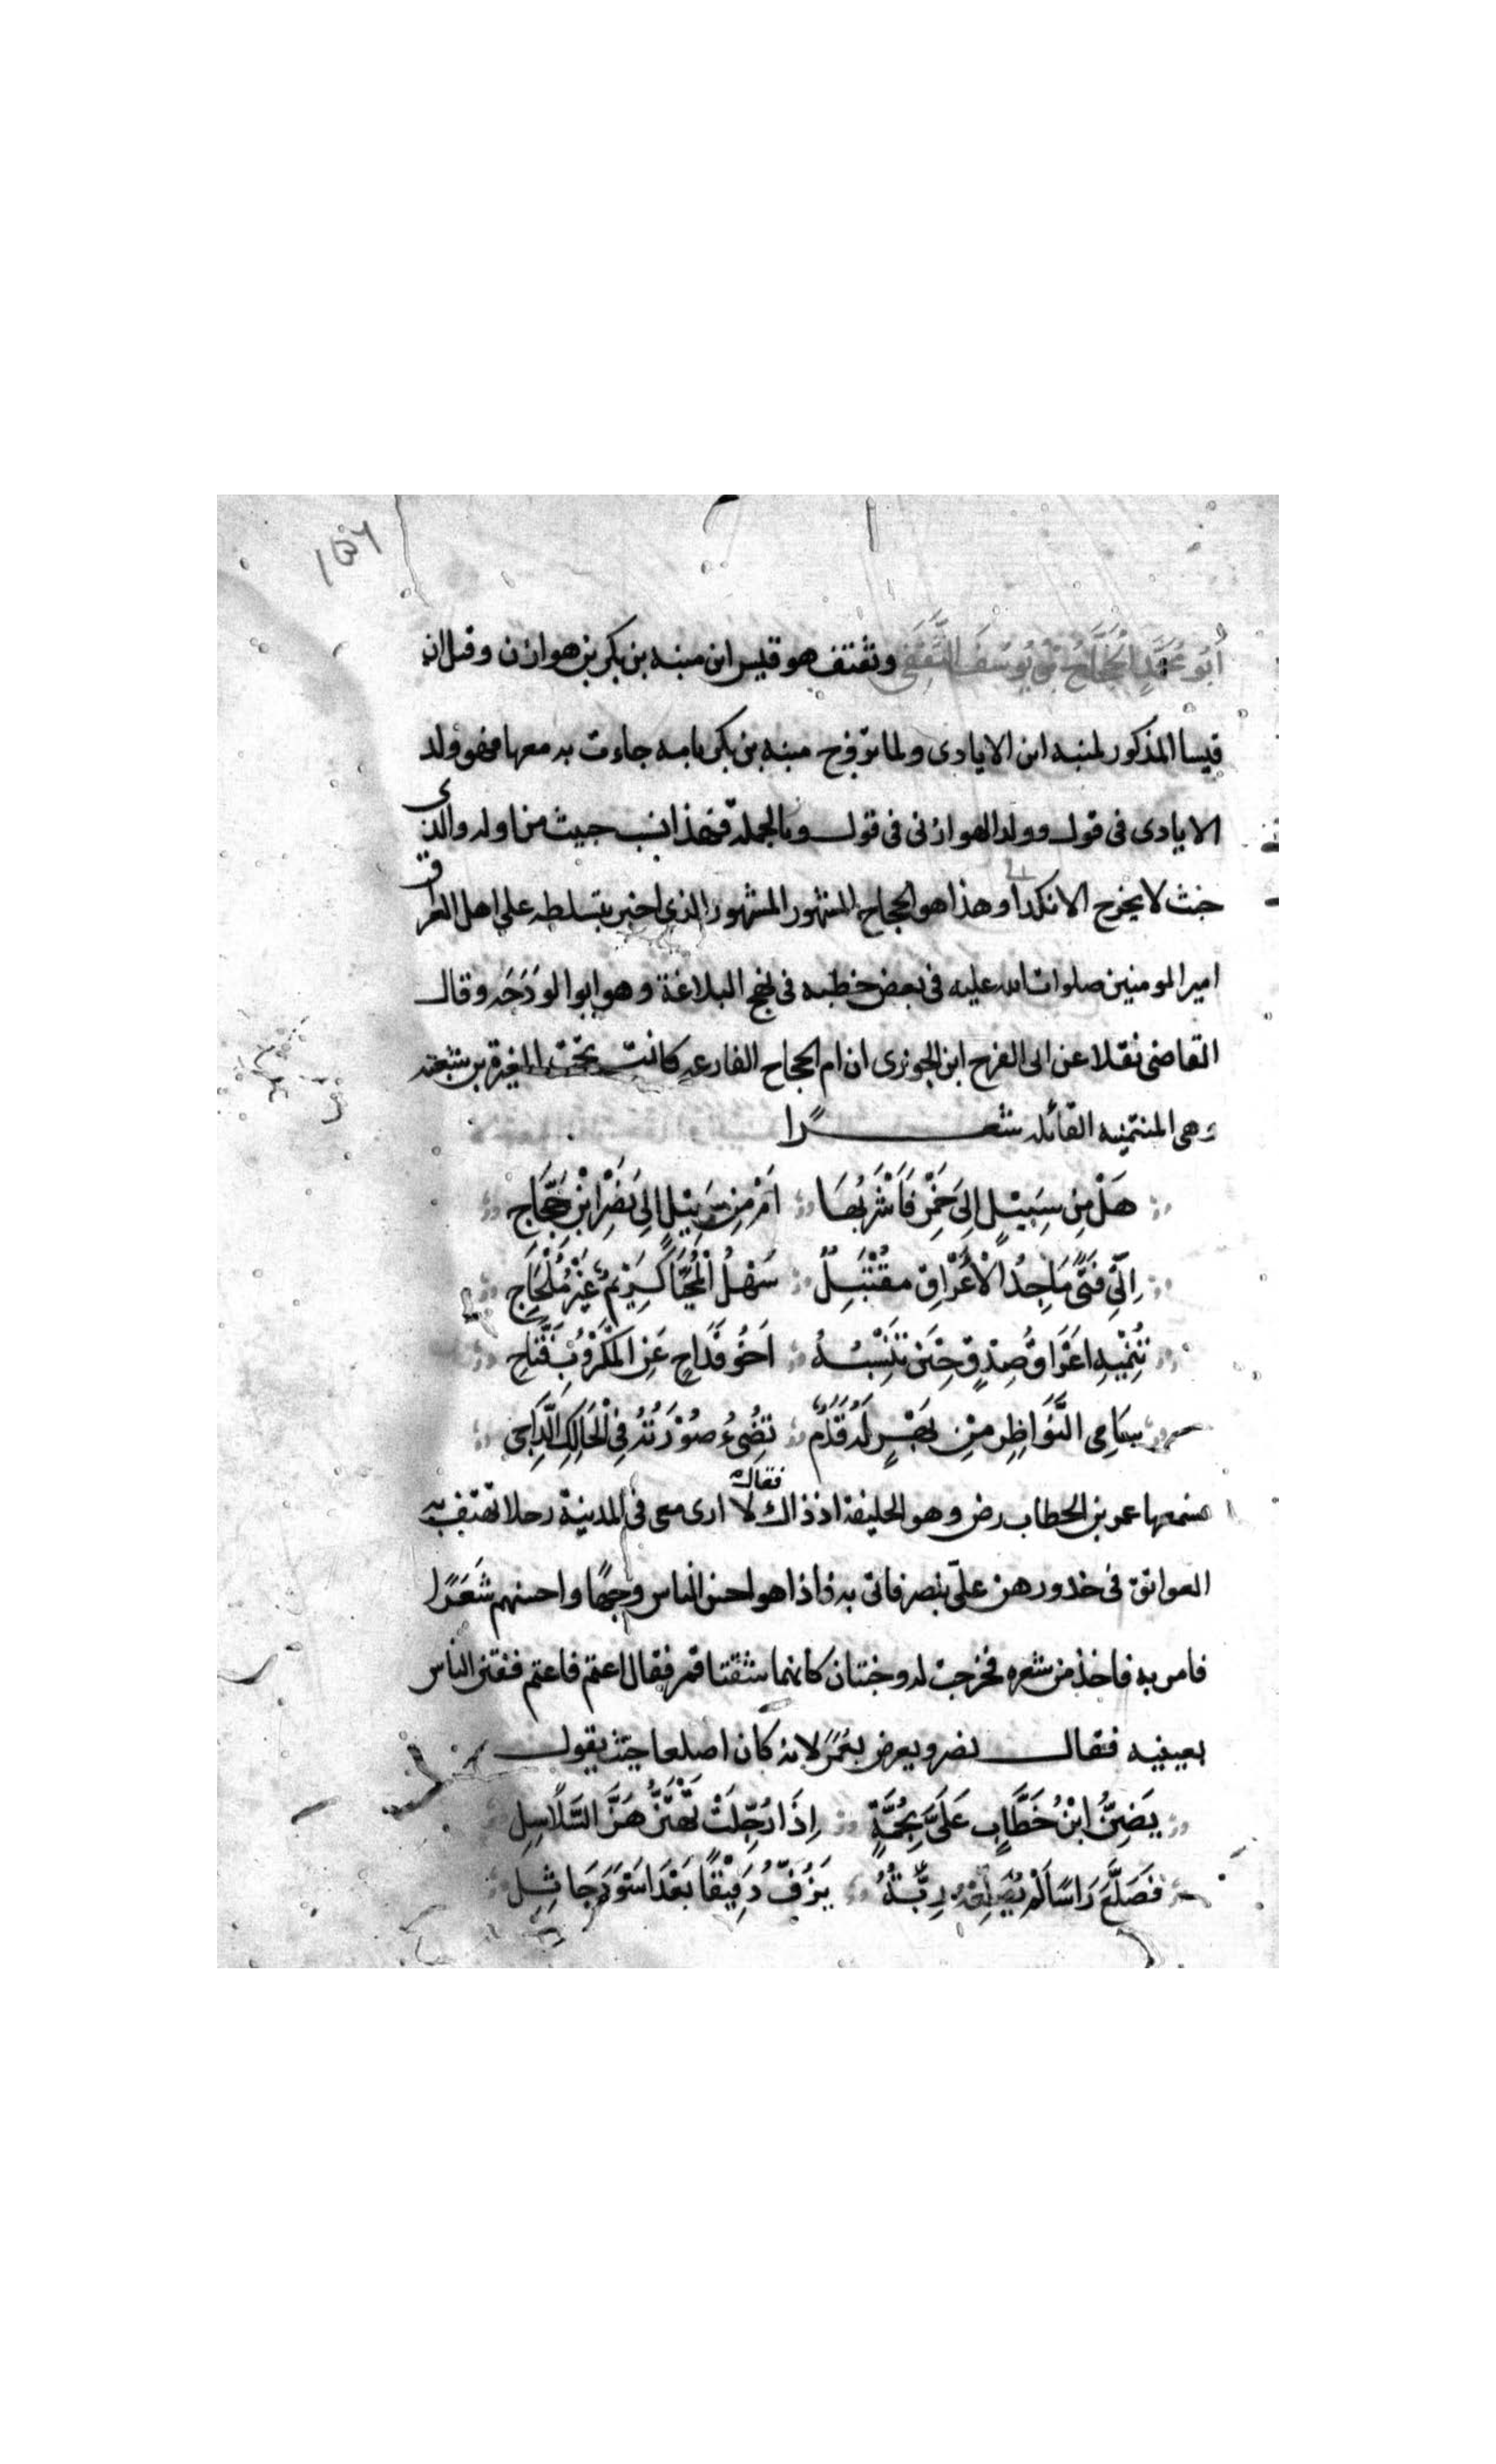 ١٥٦
أَبُو مُحَمَّدٍ الحَجَّاجُ بْنُ يُوسُفَ الثَّقَفِي وثقيف هو قيس ابن منبه بن بكر بن هوازن وقيل ان
قيسا المذكور لمنبه ابن الايادى ولما تزوج منبه بن بكر بامه جاءت به معها فهو ولد
الايادى فى قول وولد الهوازنى فى قول وبالجملة فهذا نسب حيث من اوله والذى
خبث لا يخرج الا نكدا وهذا هو الحجاج المشهور المشهور الذى اخبر بتسلطه على اهل العراق
امير المومنين صلوات الله عليه فى بعض خطبه فى نهج البلاغة وهو ابو الوَذَحَه وقال
القاضى نقلا عن ابى الفرج ابن الجوزى ان ام الحجاج الفارعه كانت تحت المغيرة بن شعبته
وهى المتمنيه القائله شعرًا
هَلْ مِن سَبِيْلٍ اِلى خَمْرٍ فَاَشْرَبُهَا اَمْ مِن سَبِيْلٍ اِلى نَصْرِ ابْنِ حَجَّاجِ
اِلى فَتًى مَاجِدُ الْأَعْرَاقِ مقْتَبِلٌ سَهْلُ الْمُحَيَّا كَرِيْمٌ غَيْرُ مُلْجَاجِ
تُنْمِيْهِ اعْرَاقُ صِدْقٍ حِيْنَ تَنْسِبُهُ اَخُو قَدَاحٍ عَنِ الْمَكْرُوْبِ فَتَّاحِ
سَامِى النَّوَاظِرِ مِنْ بَهْزٍ لَهُ قُدُمٌ تُضِىءُ صُوْرَتُهُ فِى الْحَالِكِ الدَّاجِى
فسمعها عمر بن الخطاب رض وهو الخليفة اذ ذاك فقال لا ارى معى فى المدينة رجلا تهتف به
العواتق فى خدورهن علىّ بنصر فاتى به فاذا هو احسن الناس وجهًا واحسنهم شَعَرًا
فامر به فاخذ من شعره فخرجت له وجنتان كانهما شقتا قمر فقال اعتم فاعتم ففتن الناس
بعينيه فقال نصر ويعرض بعُمَرَ لانه كان اصلعا حيث يقول
يَضِنُّ ابْنُ خَطَّابٍ عَلَىَّ بِجُمَّةٍ اِذَا رُجِّلَتْ تَهْتَزُّ هَزَّ السَّلَاسِلِ
فَصَلَّعَ رَاسًا لَمْ يُصَلِّعْهُ رِبَّهُ يَرُفُّ رَفِيْفًا بَعْدَ اسْوَدَ جَاثِلِ